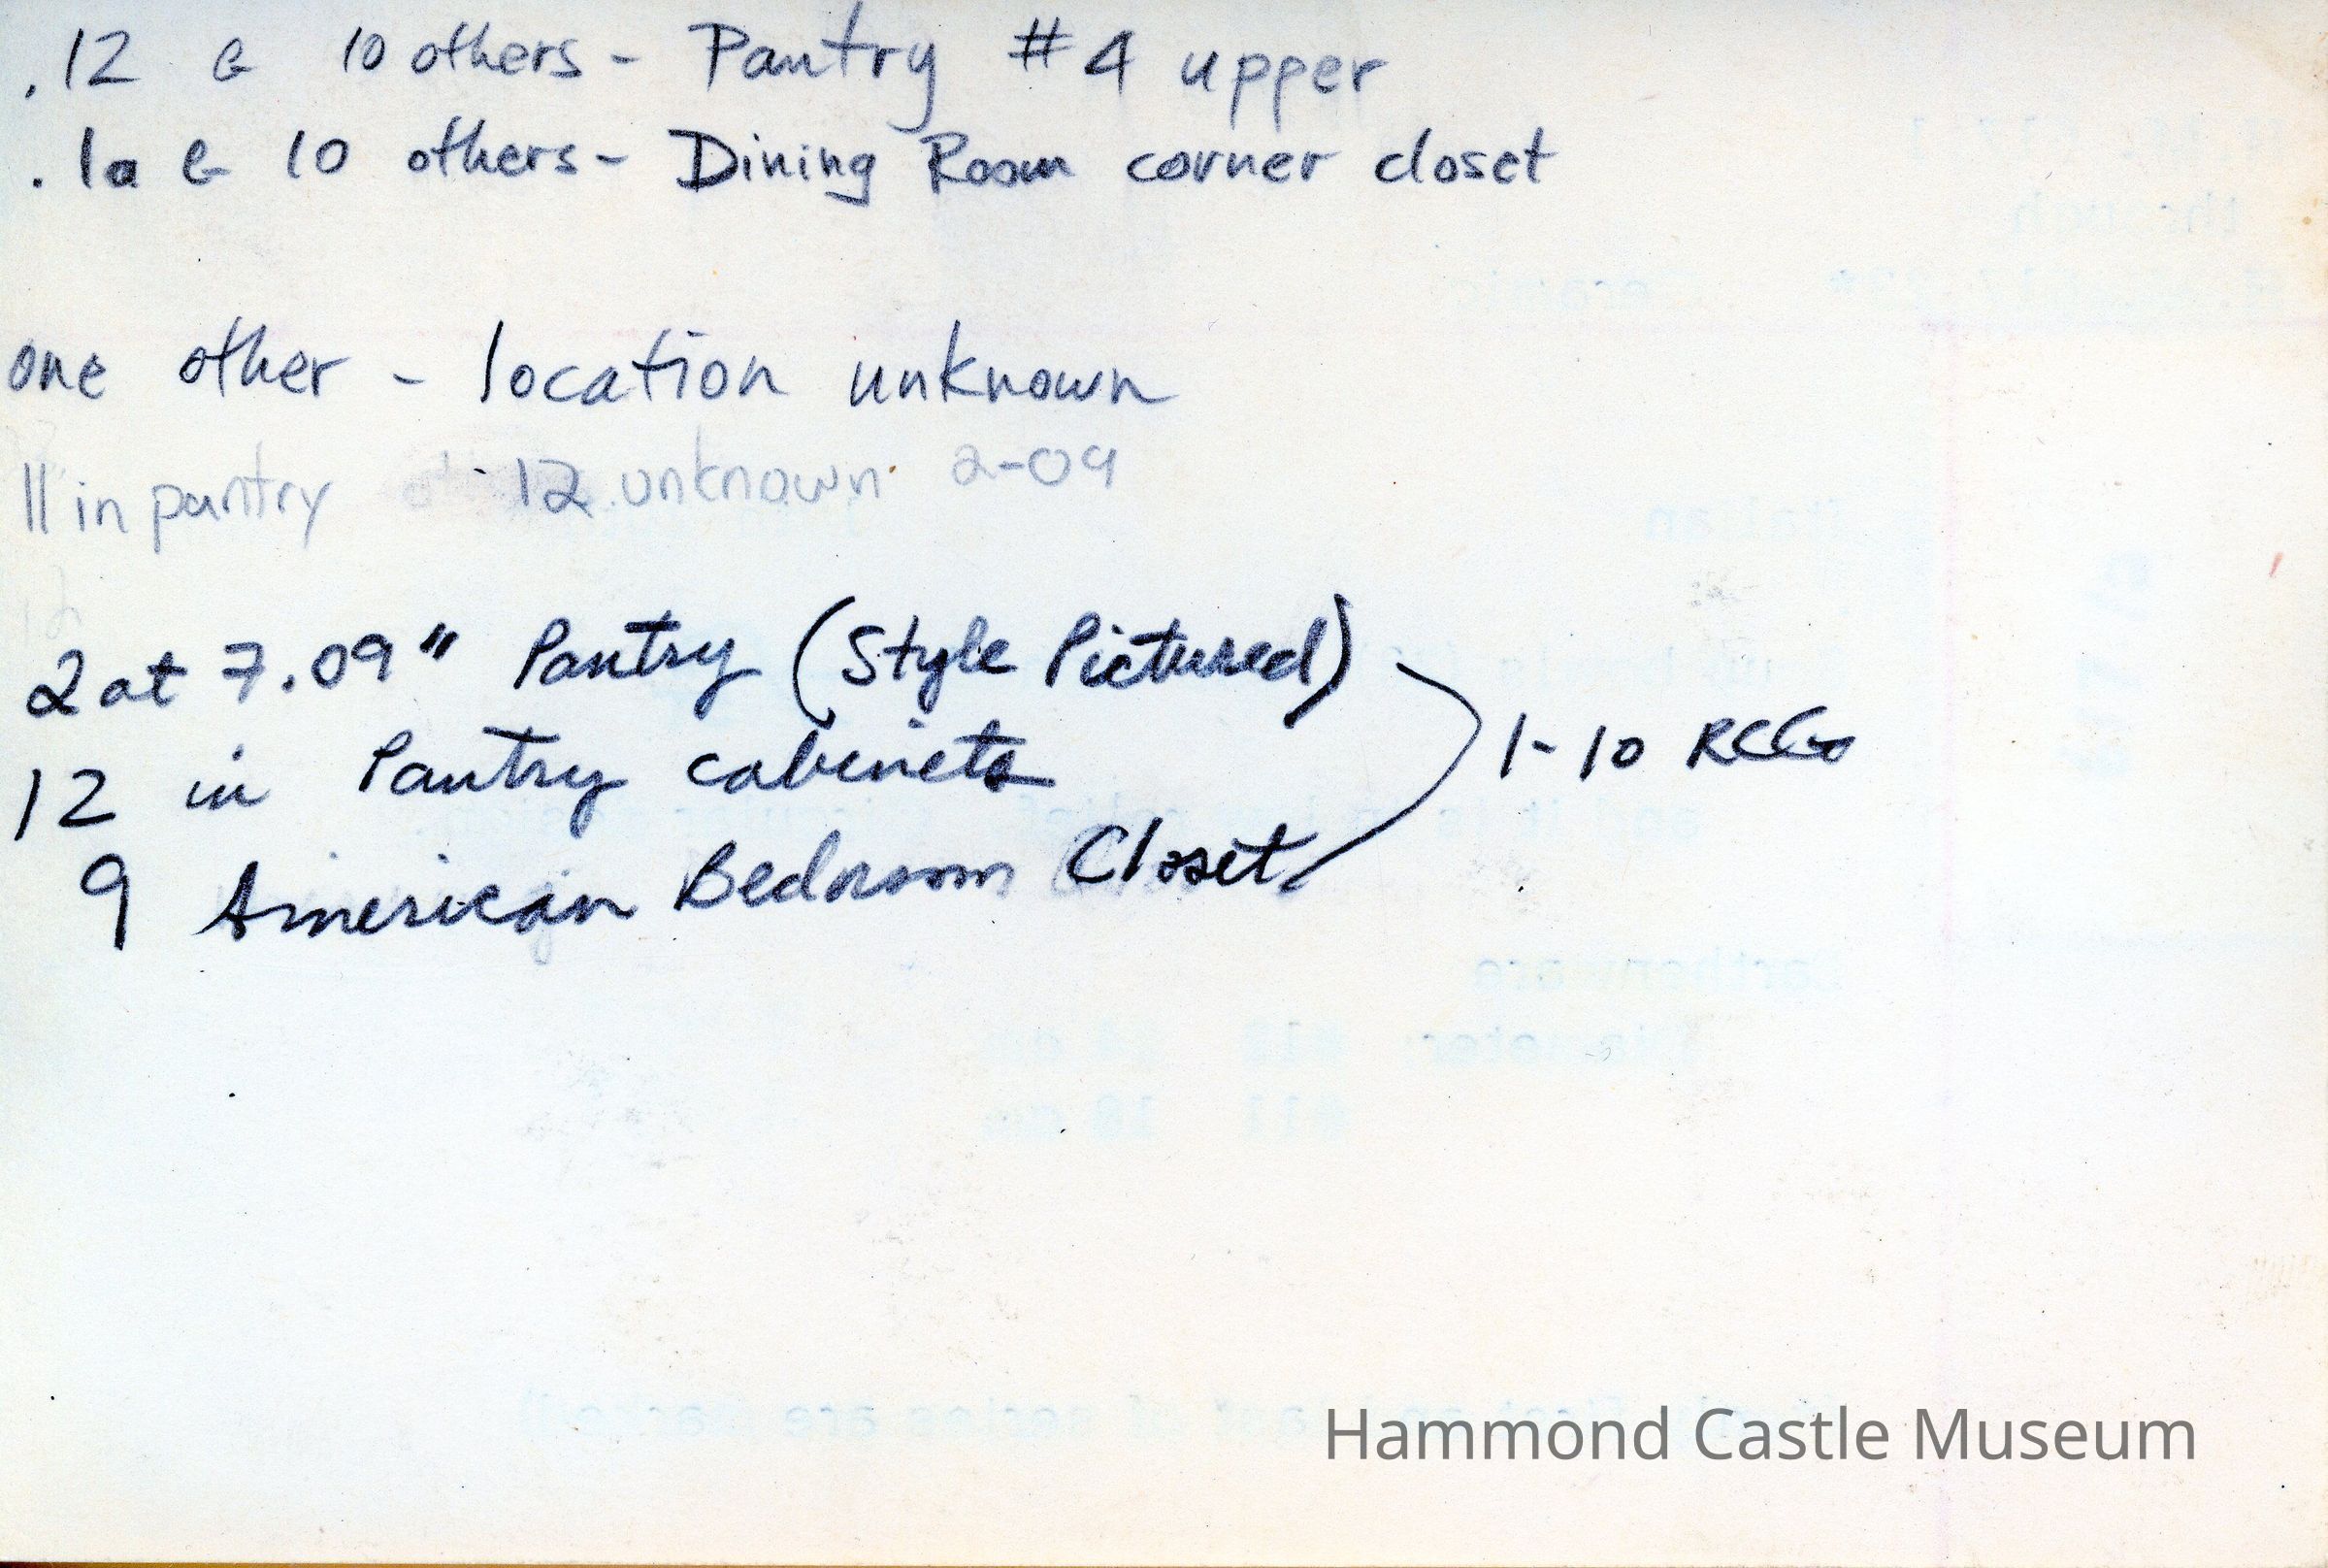 .12 & 10 others - Pantry #4 upper
.1a & 10 others - Dining Room corner closet
one other - location unknown
11 in pantry 12 unknown 2-09
12
2 at 7.09" Pantry (Style Pictured)
12 in Pantry cabinets
9 American Bedroom Closet
1-10 RCG
Hammond Castle Museum